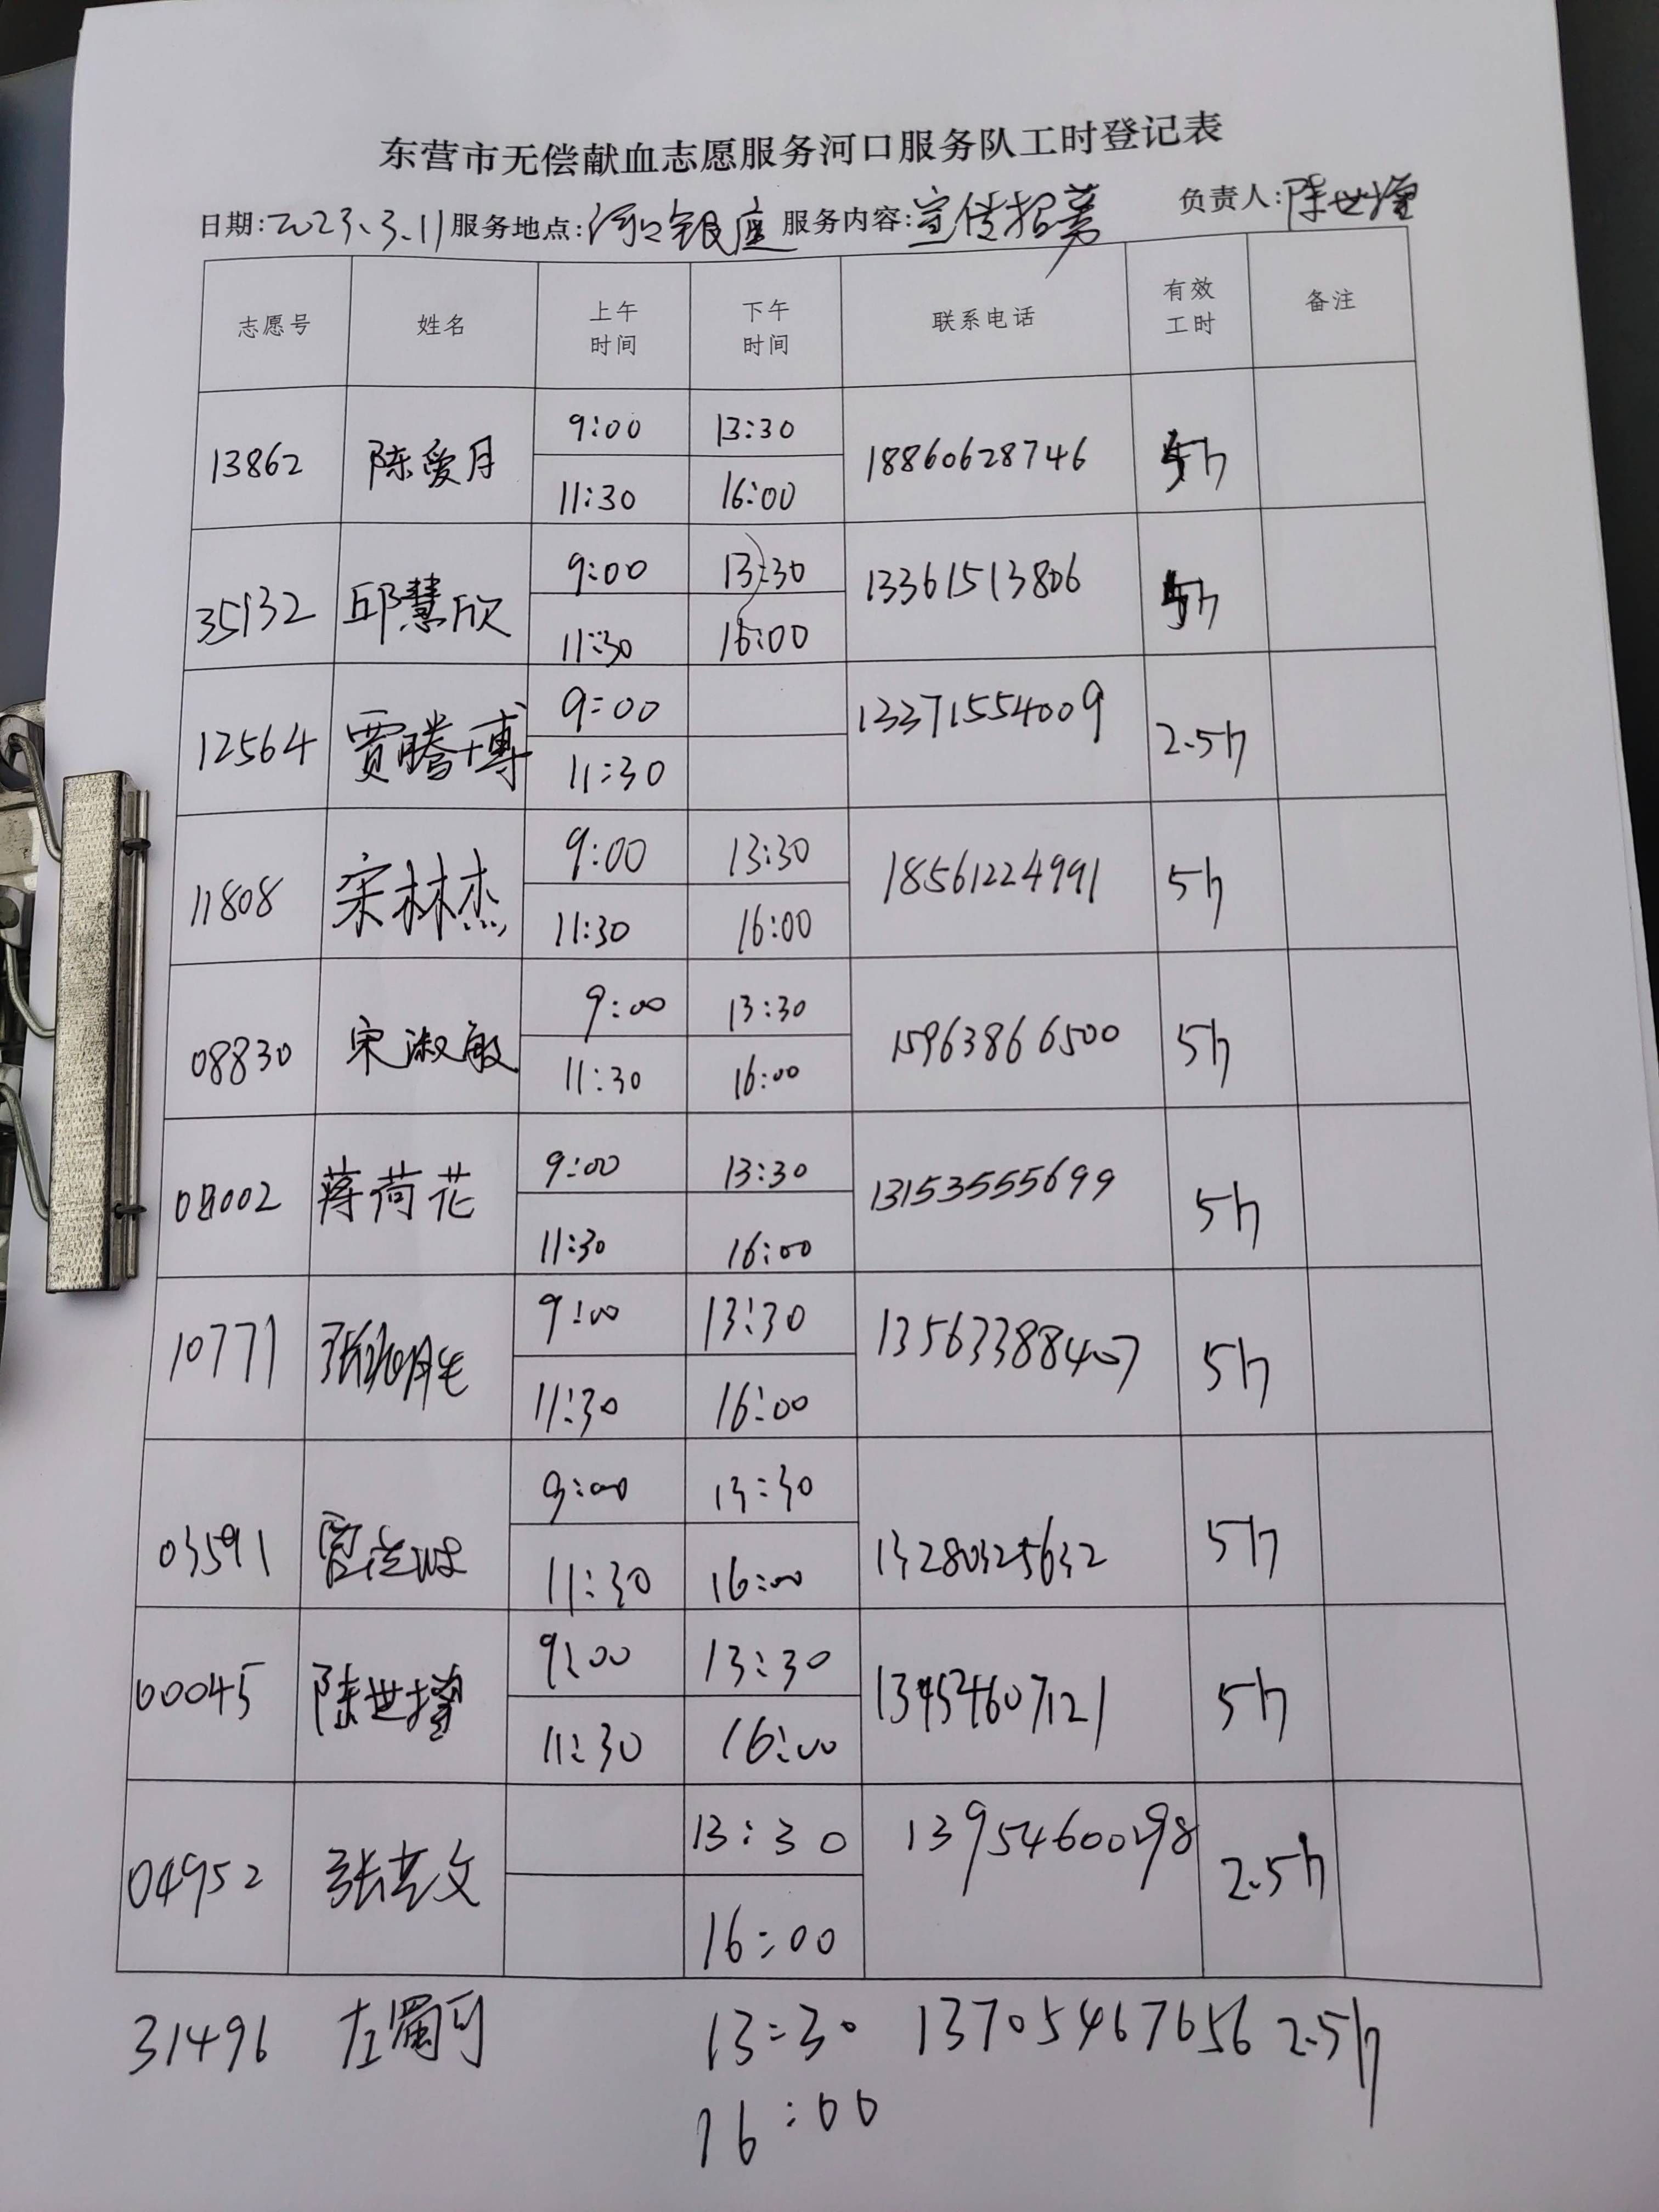 东营市无偿献血志愿服务河口服务队工时登记表
日期:2023.3.11 服务地点:河口银座 服务内容:宣传招募 负责人:陈世增
志愿号 姓名 上午时间 下午时间 联系电话 有效工时 备注
13862 陈爱月 9:00 13:30 18860628746 5h
11:30 16:00
35132 邱慧欣 9:00 13:30 13361513806 5h
11:30 16:00
12564 贾腾博 9:00 13371554009 2.5h
11:30
11808 宋林杰 9:00 13:30 18561224991 5h
11:30 16:00
08830 宋淑敏 9:00 13:30 15963866500 5h
11:30 16:00
08002 蒋荷花 9:00 13:30 13153555699 5h
11:30 16:00
10771 9:00 13:30 13563388407 5h
11:30 16:00
03591 9:00 13:30 13280325632 5h
11:30 16:00
00045 陈世增 9:00 13:30 13454607121 5h
11:30 16:00
04952 13:30 13954600298 2.5h
16:00
31496 13:30 13705467656 2.5h
16:00